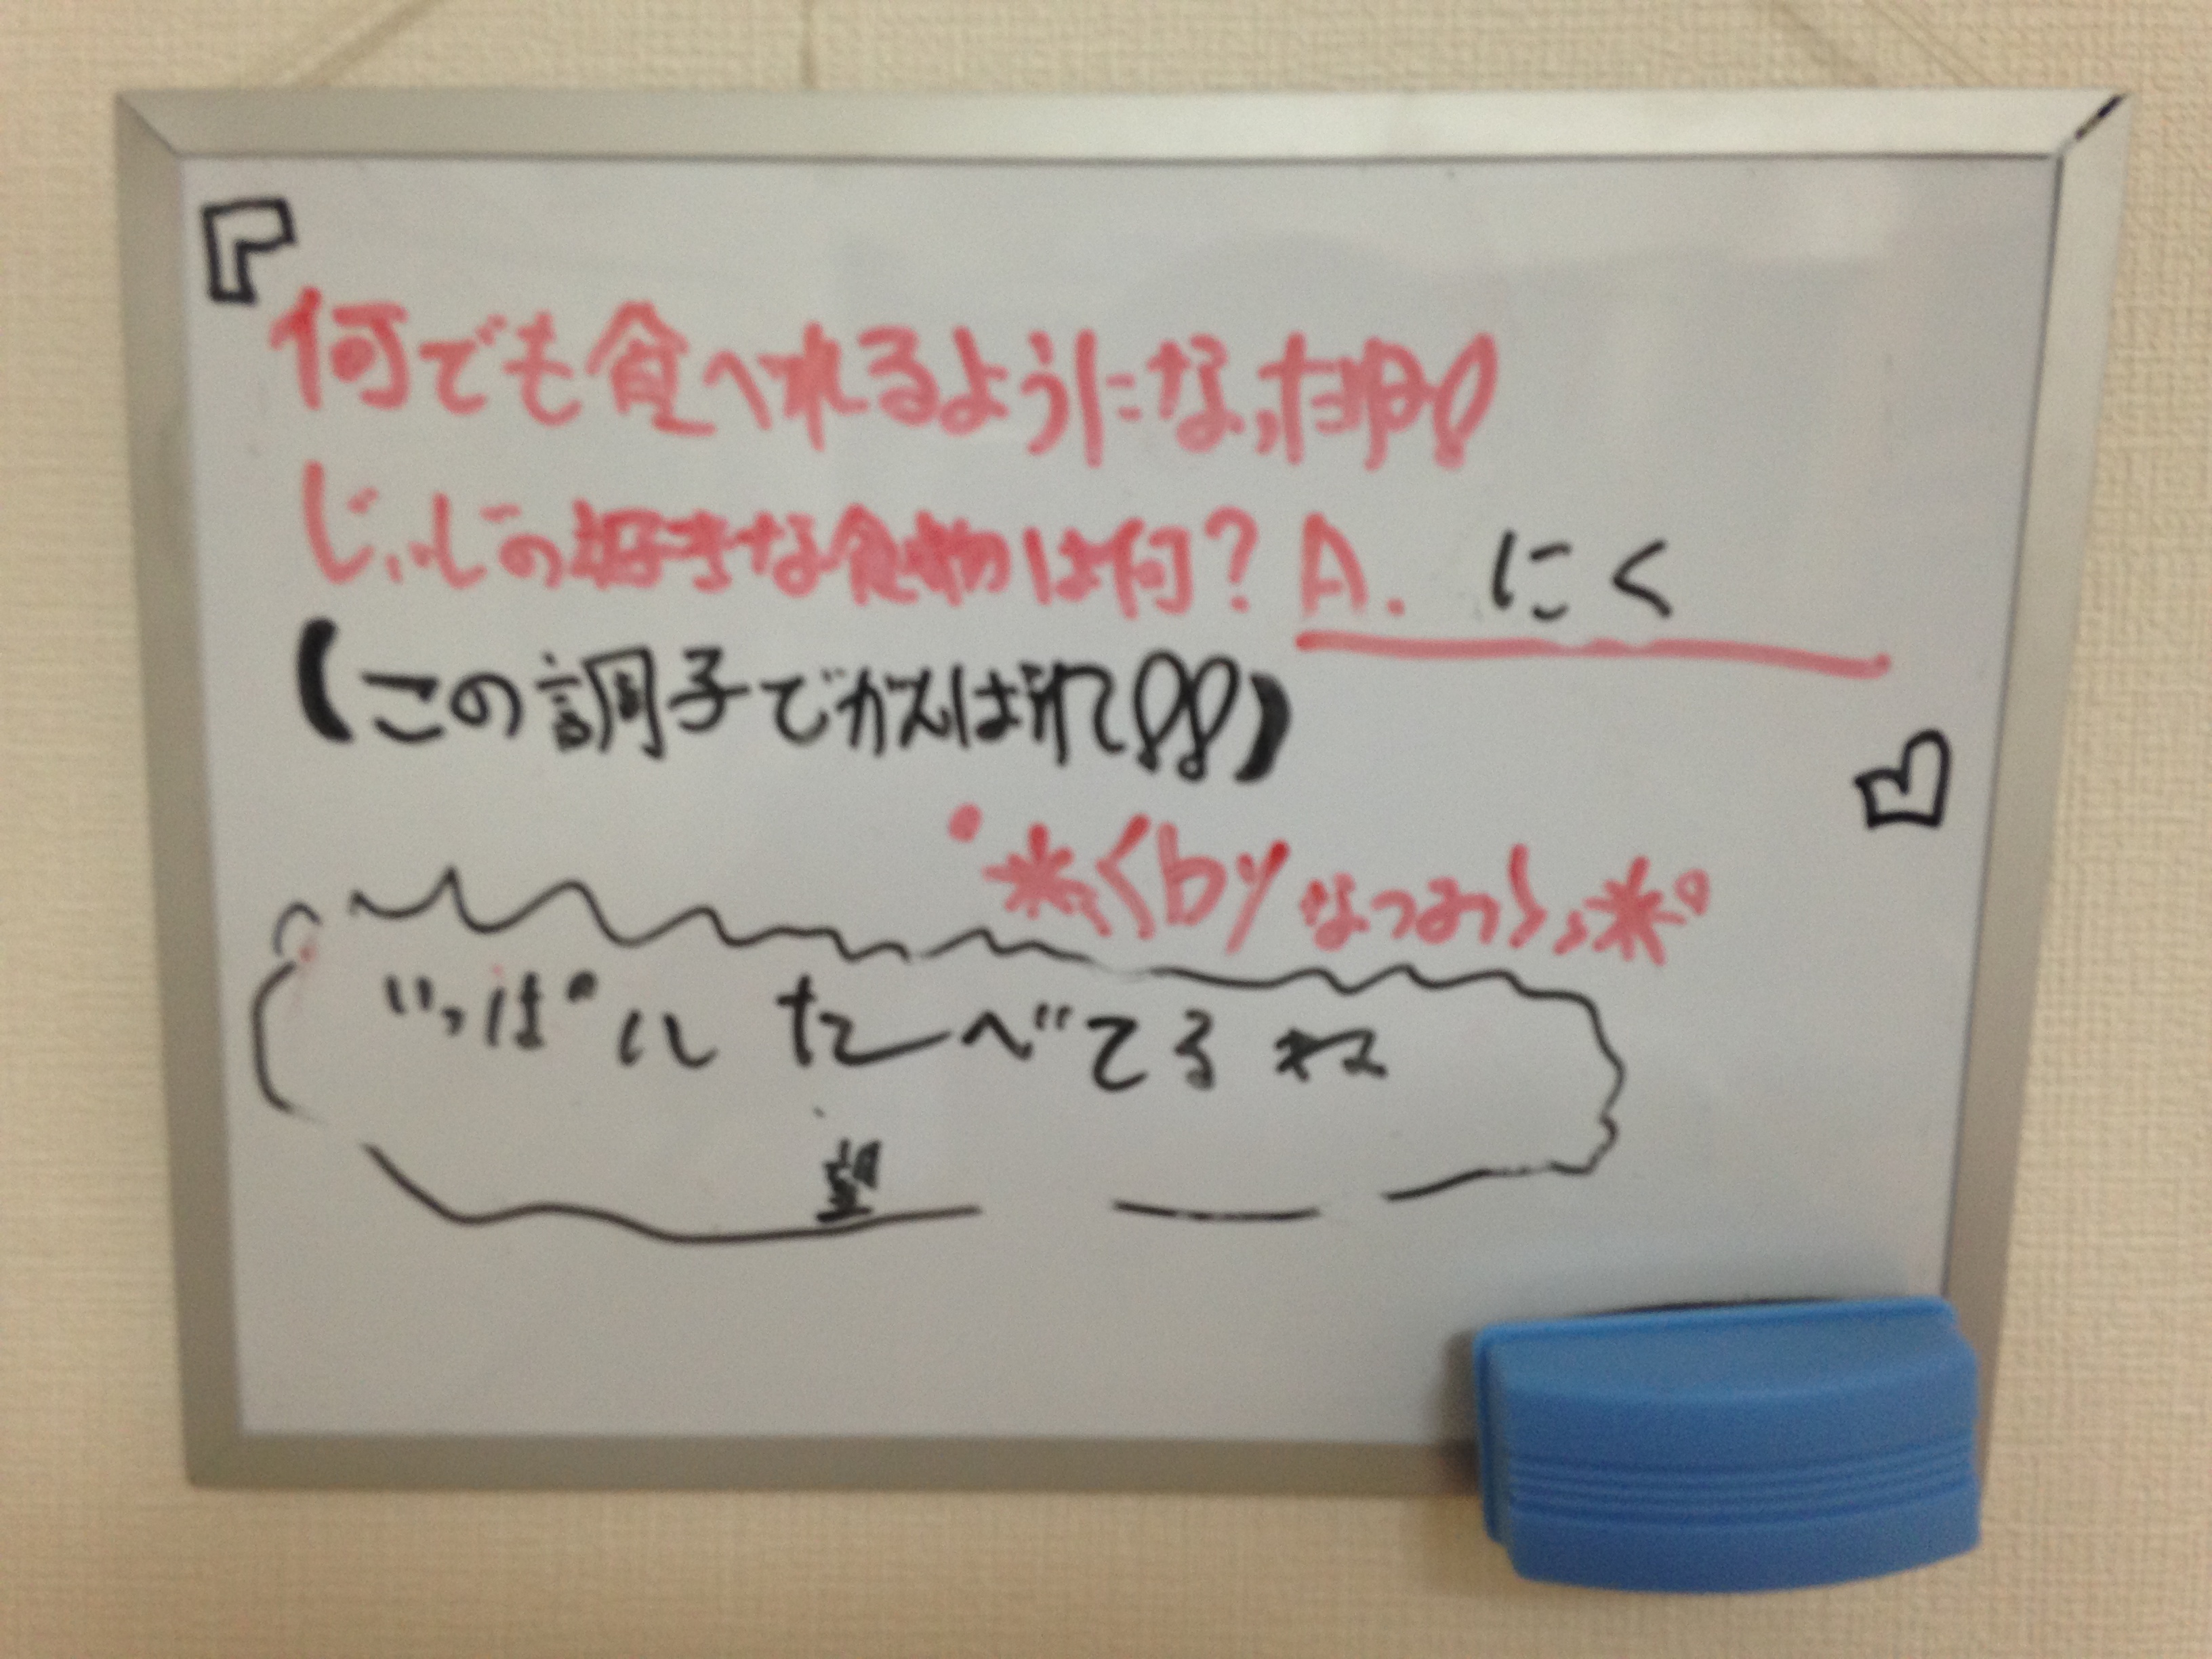 『何でも食べれるようになった!
じぃじの好きな食物は何？A. にく
(この調子でがんばれ!!)
』
*<byなつみ>*
いっぱい たべてるね
望